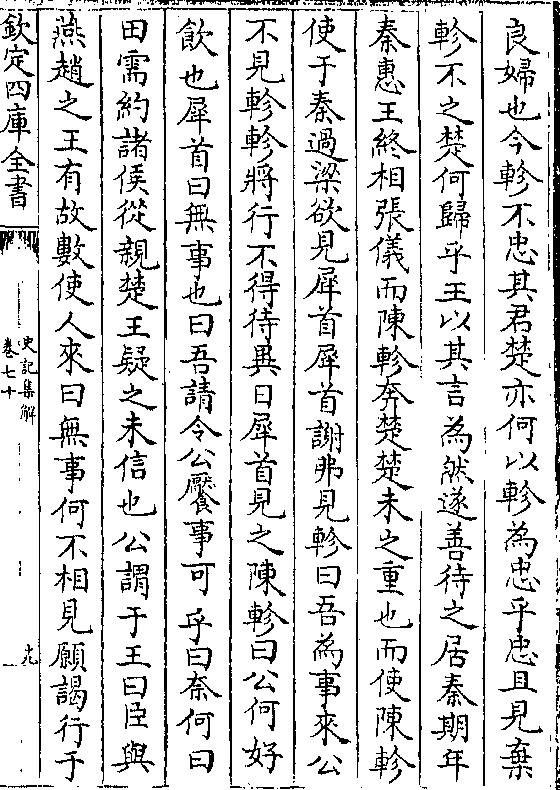 良婦也今軫不忠其君楚亦何以軫為忠乎忠且見棄
軫不之楚何歸乎王以其言為然遂善待之居秦期年
秦惠王終相張儀而陳軫奔楚楚未之重也而使陳軫
使于秦過梁欲見犀首犀首謝弗見軫曰吾為事來公
不見軫軫將行不得待異日犀首見之陳軫曰公何好
飲也犀首曰無事也曰吾請令公饜事可乎曰奈何曰
田需約諸侯從親楚王疑之未信也公謂于王曰臣與
燕趙之王有故數使人來曰無事何不相見願謁行于
欽定四庫全書
史記集解
卷七十
九